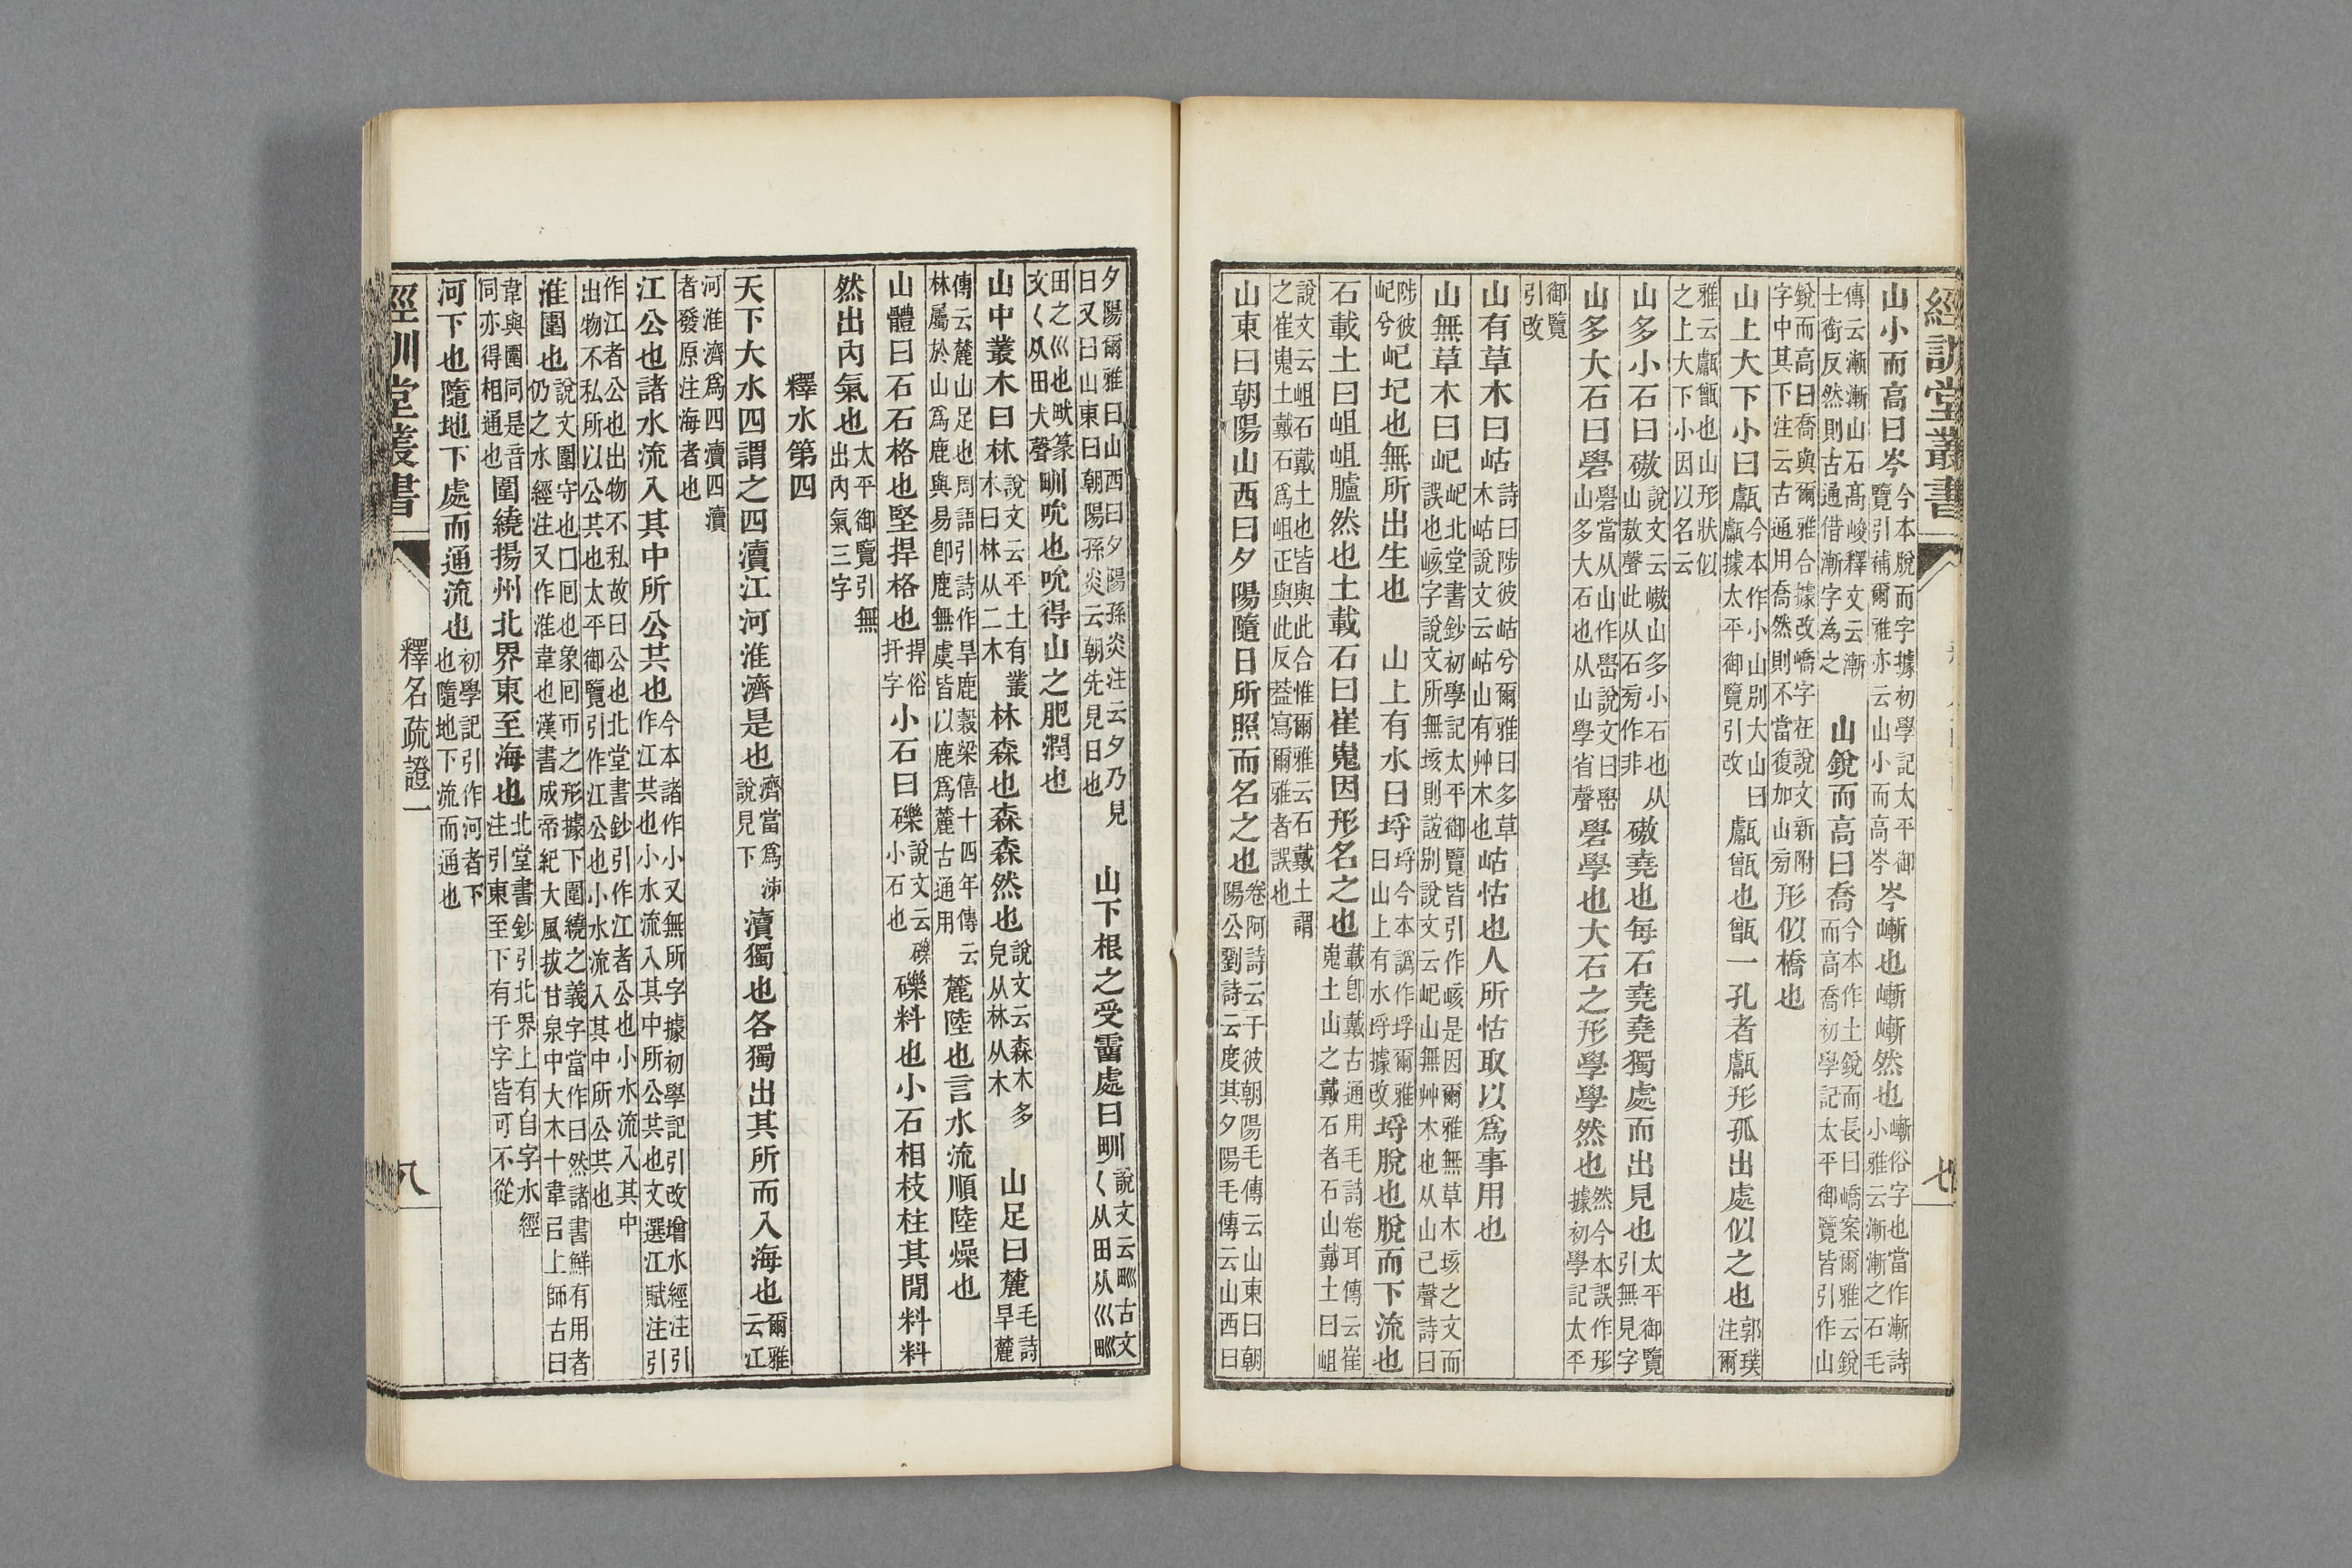 經訓堂叢書　七
山小而高曰岑今本脫而字據初學記太平御
覽引補爾雅亦云山小而高岑岑嶃也嶃嶃然也嶃俗字也當作漸詩
小雅云漸漸之石毛
傳云漸漸山石高峻釋文云漸
士銜反然則古通借漸字為之　山銳而高曰喬今本作土銳而長曰嶠案爾雅云銳
而高喬初學記太平御覽皆引作山
銳而高曰喬與爾雅合據改嶠字在說文新附
字中其下注云古通用喬然則不當復加山旁形似橋也
山上大下小曰甗今本作小山別大山曰
甗據太平御覽引改甗甑也甑一孔者甗形孤出處似之也郭璞
注爾
雅云甗甑也山形狀似
之上大下小因以名云
山多小石曰磝說文云嶅山多小石也从
山敖聲此从石旁作非磝堯也每石堯堯獨處而出見也太平御覽
引無見字
山多大石曰礐礐當从山作嶨說文曰嶨
山多大石也从山學省聲礐學也大石之形學學然也然今本誤作形
據初學記太平
御覽
引改
山有草木曰岵詩曰陟彼岵兮爾雅曰多草
木岵說文云岵山有艸木也岵怙也人所怙取以爲事用也
山無草木曰屺屺北堂書鈔初學記太平御覽皆引作峐是因爾雅無草木峐之文而
誤也峐字說文所無垓則詃别說文云屺山無艸木也从山己聲詩曰
陟彼
屺兮屺圮也無所出生也　山上有水曰埒埒今本譌作垺爾雅
曰山上有水埒據改埒脫也脫而下流也
石載土曰岨岨臚然也土載石曰崔嵬因形名之也載卽戴古通用毛詩卷耳傳云崔
嵬土山之戴石者石山戴土曰岨
說文云岨石戴土也皆與此合惟爾雅云石戴土謂
之崔嵬土戴石爲岨正與此反葢寫爾雅者誤也
山東曰朝陽山西曰夕陽隨日所照而名之也卷阿詩云于彼朝陽毛傳云山東曰朝
陽公劉詩云度其夕陽毛傳云山西曰
夕陽爾雅曰山西曰夕陽孫炎注云夕乃見
日又曰山東曰朝陽孫炎云朝先見日也　山下根之受霤處曰甽說文云甽古文
𡿨从田从巛甽
田之巛也畎篆
文𡿨从田犬聲甽吮也吮得山之肥潤也
山中叢木曰林說文云平土有叢
木曰林从二木林森也森森然也說文云森木多
皃从林从木　山足曰麓毛詩
旱麓
傳云麓山足也周語引詩作旱鹿穀梁僖十四年傳云
林屬於山爲鹿與易卽鹿無虞皆以鹿爲麓古通用麓陸也言水流順陸燥也
山體曰石石格也堅捍格也捍俗
扞字小石曰礫說文云礫
小石也礫料也小石相枝柱其閒料料
然出內氣也太平御覽引無
出內氣三字
釋水第四
天下大水四謂之四瀆江河淮濟是也濟當爲沛
說見下瀆獨也各獨出其所而入海也爾雅
云江
河淮濟爲四瀆四瀆
者發原注海者也
江公也諸水流入其中所公共也今本諸作小又無所字據初學記引改增水經注引
作江共也小水流入其中所公共也文選江賦注引
作江者公也出物不私故曰公也北堂書鈔引作江者公也小水流入其中
出物不私所以公共也太平御覽引作江公也小水流入其中所公共也
淮圍也說文圍守也囗囘也象囘帀之形據下圍繞之義字當作囗然諸書鮮有用者
仍之水經注又作淮韋也漢書成帝紀大風拔甘泉中大木十韋㠯上師古曰
韋與圍同是音
同亦得相通也圍繞揚州北界東至海也北堂書鈔引北界上有自字水經
注引東至下有于字皆可不從
河下也隨地下處而通流也初學記引作河者下
也隨地下流而通也
經訓堂叢書　釋名疏證一　八